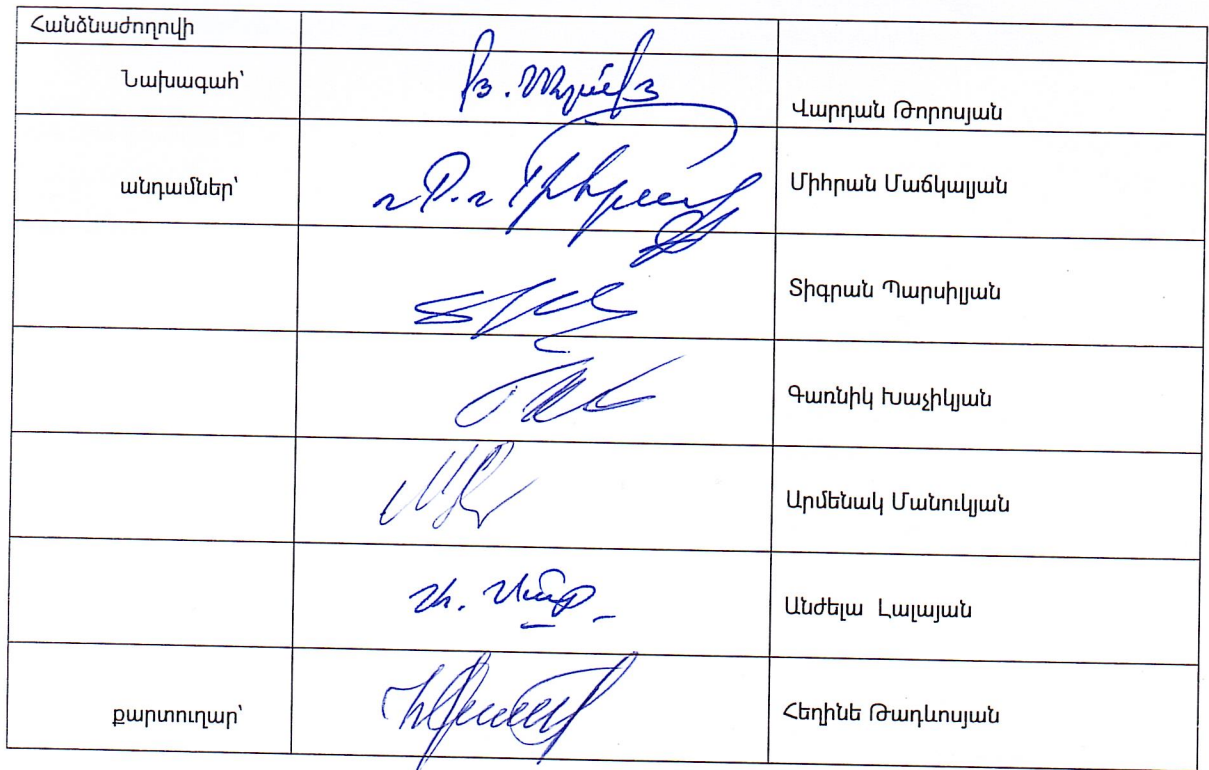 Հանձնաժողովի
Նախագահ՝
Վարդան Թորոսյան
անդամներ՝
Միհրան Մաճկալյան
Տիգրան Պարսիլյան
Գառնիկ Խաչիկյան
Արմենակ Մանուկյան
Անժելա Լալայան
քարտուղար՝
Հեղինե Թադևոսյան